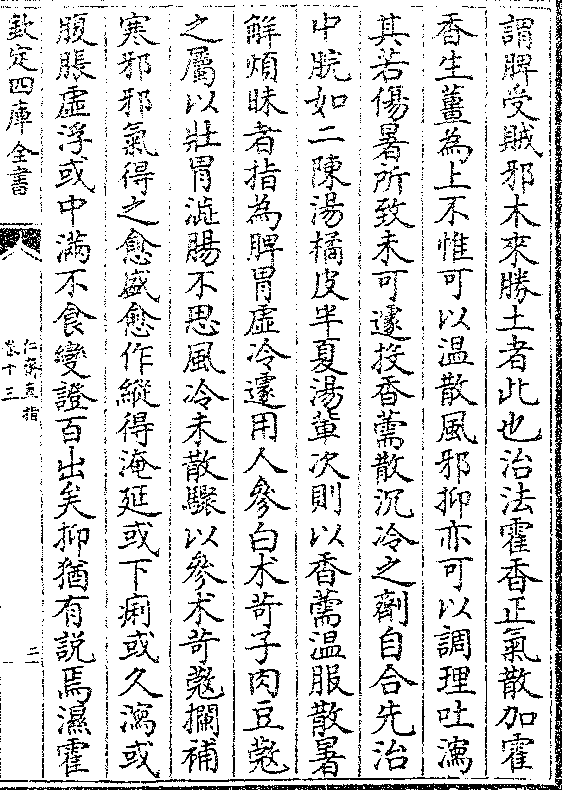 謂脾受賊邪木來勝土者此也治法霍香正氣散加霍
香生薑為上不惟可以温散風邪抑亦可以調理吐瀉
其若傷暑所致未可遽投香薷散沉冷之劑自合先治
中脘如二陳湯橘皮半夏湯軰次則以香薷温服散暑
解煩昧者指為脾胃虚冷遽用人參白术苛子肉豆𦸻
之屬以壯胃澁腸不思風冷未散驟以參术苛𦸻攔補
寒邪邪氣得之愈盛愈作縱得淹延或下痢或久瀉或
腹脹虚浮或中滿不食變證百出矣抑猶有説焉濕霍
欽定四庫全書
仁齋直指
卷十三
三